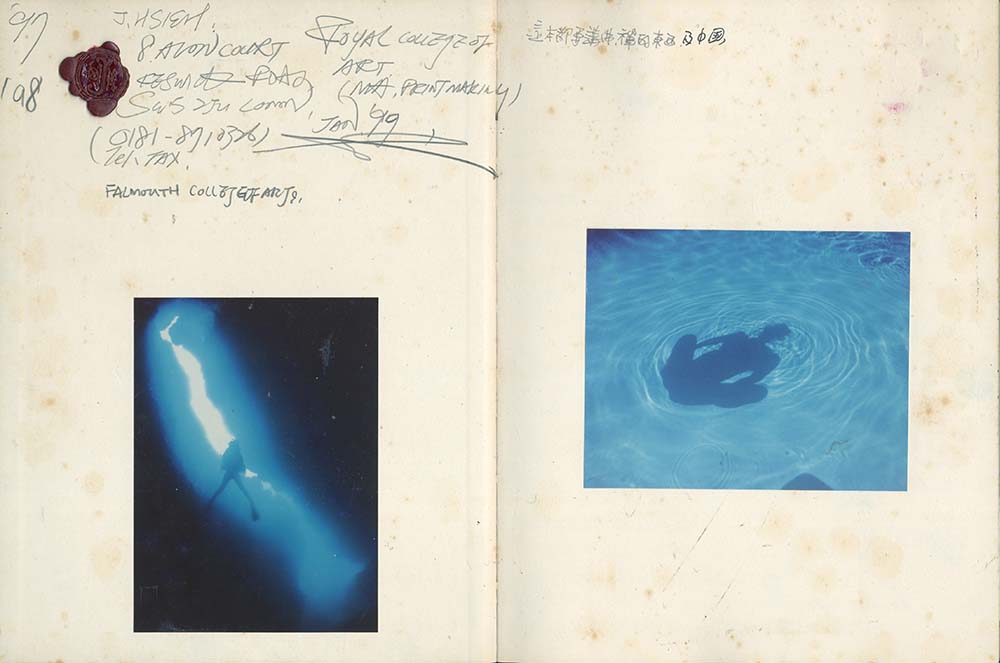 '97
'98
J. HSIEH.
8 AVON COURT
KESWICK ROAD
SW15 2JU LONDON
(0181-8710376)
Tel. FAX.
ROYAL COLLEGE OF
ART
(MA, PRINTMAKING)
JAN '99
FALMOUTH COLLEGE OF ARTS.
這本都是講佛, 禪的東西 及中国